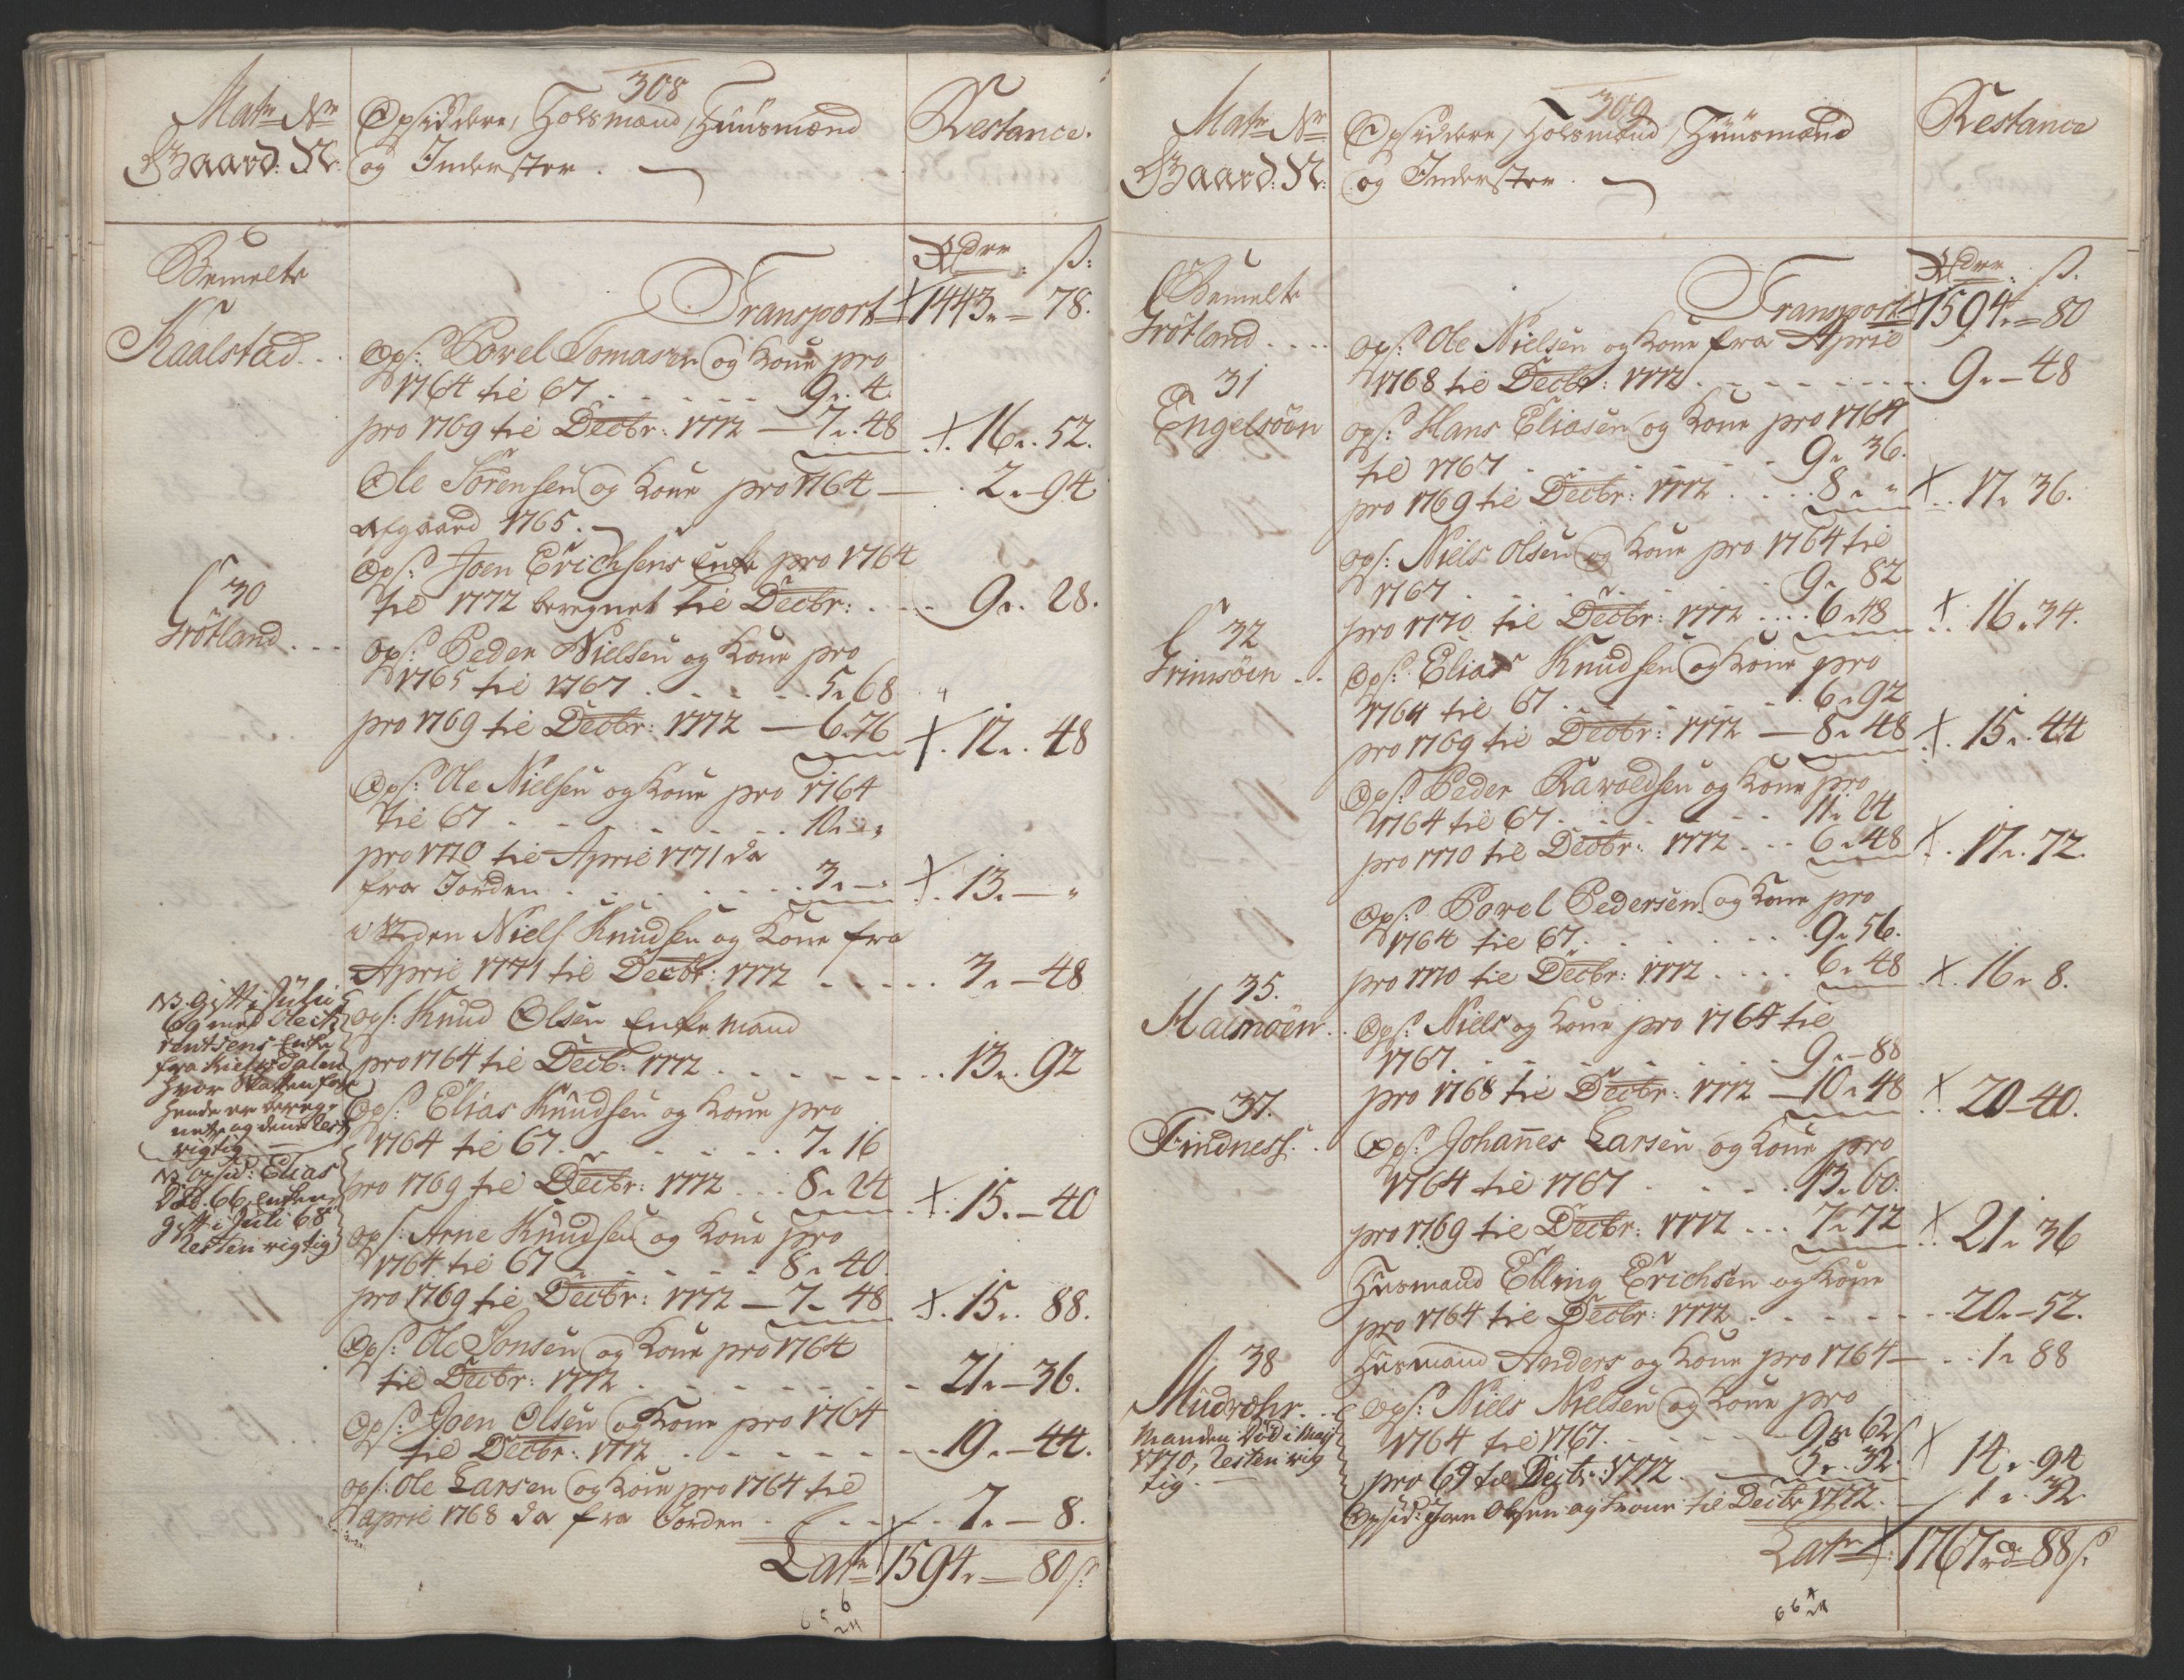 308
Matr No Opsiddere, Holsmænd, Huusmænd Restance.
Gaard: N: og Inderster.
Rdr ß:
Bemelte
Transport 1443 - 78.
Kaalstad
Ops: Povel Tomasen og Kone pro
1764 til 67 . . . 9 „ 4.
pro 1769 til Decbr: 1772 — 7 „ 48 16 „ 52.
Ole Sörensen og Kone pro 1764 — 2 „ 94
afgaard 1765.
Ops: Joen Erichsens Enke pro 1764
til 1772 beregnet til Decbr: . . . 9 „ 28.
30
Trötland
Ops: Peder Nielsen og Kone pro
1765 til 1767 . . . 5 „ 68
pro 1769 til Decbr: 1772 — 6 „ 76 12 „ 48
Ops: Ole Nielsen og Kone pro 1764
til 67 . . . 10 „ „
pro 1770 til April 1771 da
fra Jorden . . . 3 „ — 13 „ — „
Niels Knudsen og Kone fra
April 1771 til Decbr: 1772 . . . 3 „ 48
Ops: Knud Olsen Enke Mand
pro 1764 til Decb: 1772 . . . 13 „ 92
NB. Gift i Julii
69 med Ole
rentsens Enke
fra
hvor Skatten for
hende er bereg-
net og denne Rest
rigtig
Ops: Elias Knudsen og Kone pro
1764 til 67 . . . 7 „ 16
pro 1769 til Decbr: 1772 . . . 8 „ 24 15 „ 40
NB Opsid: Elias
Död. 66, Enken
gift i Juli 68
Resten rigtig
Ops: Arne Knudsen og Kone pro
1764 til 67 . . . 8 „ 40.
pro 1769 til Decbr: 1772 — 7 „ 48 15 „ 88.
Ops: Ole Jonsen og Kone pro 1764
til Decbr: 1772 . . . 21 „ 36.
Ops: Joen Olsen og Kone pro 1764
til Decbr: 1772 . . . 19 „ 44.
Ops: Ole Larsen og Kone pro 1764 til
april 1768 da fra Jorden . . . 7 „ 8.
Latr 1594 „ 80 ß:
309
Matr No Opsiddere, Holsmænd, Huusmænd Restance
Gaard: N: og Inderster.
Rdr ß.
Bemelte
Transport 1594 „ 80
Trötland
Ops: Ole Nielsen og Kone fra April
1768 til Decbr: 1772 . . . 9 „ 48
31
Engelsöen
Ops: Hans Eliasen og Kone pro 1764
til 1767 . . . 9 „ 36.
pro 1769 til Decbr: 1772 . . . 8 „ „ 17 „ 36.
Ops: Niels Olsen og Kone pro 1764 til
1767 . . . 9 „ 82
pro 1770 til Decbr: 1772 . . . 6 „ 48 16 „ 34.
32
Trimsöen
Ops: Elias Knudsen og Kone pro
1764 til 67 . . . 6 „ 92
pro 1769 til Decbr: 1772 — 8 „ 48 15 „ 44
Ops: Peder Haroldsen og Kone pro
1764 til 67 . . . 11 „ 24
pro 1770 til Decbr: 1772 . . . 6 „ 48 17 „ 72.
Ops: Povel Pedersen og Kone pro
1764 til 67 . . . 9 „ 56.
pro 1770 til Decbr: 1772 . . . 6 „ 48 16 „ 8.
35.
Halmöen
Ops: Niels og Kone pro 1764 til
1767 . . . 9 „ 88
pro 1768 til Decbr: 1772 — 10 „ 48 20 „ 40.
37.
Findness
Ops: Johannes Larsen og Kone pro
1764 til 1767 . . . 13 „ 60.
pro 1769 til Decbr: 1772 . . . 7 „ 72 21 „ 36
Husmand Elling Erichsen og Kone
pro 1764 til Decbr: 1772 . . . 20 „ 52.
Husmand Anders og Kone pro 1764 — 1 „ 88
38
Mudvær
Ops: Niels Nielsen og Kone pro
1764 til 1767 . . . 9 „ 62
pro 69 til Decbr: 1772. — 5 „ 32 14 „ 94
Manden Död i Maj
1770, Resten rig
tig.
Opsid: Joen Olsen og Kone til Decbr 1772. — 1 „ 32
Latr 1767 rd 88 ß